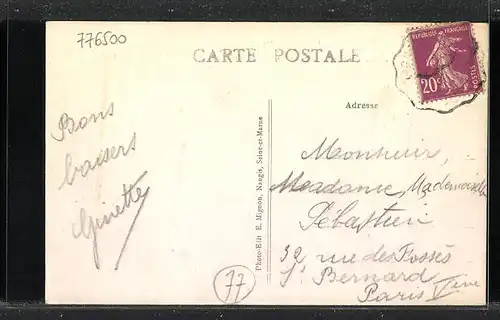 776500
CARTE POSTALE
REPUBLIQUE FRANÇAISE
20c
POSTES
Adresse
Bons
baisers
Ginette
Photo-Edit E. Mignon, Nangis, Seine-et-Marne
Monsieur,
Meadame, Mademoiselle
Sébastien
32 rue des Fossés
St Bernard
Paris Vème
77